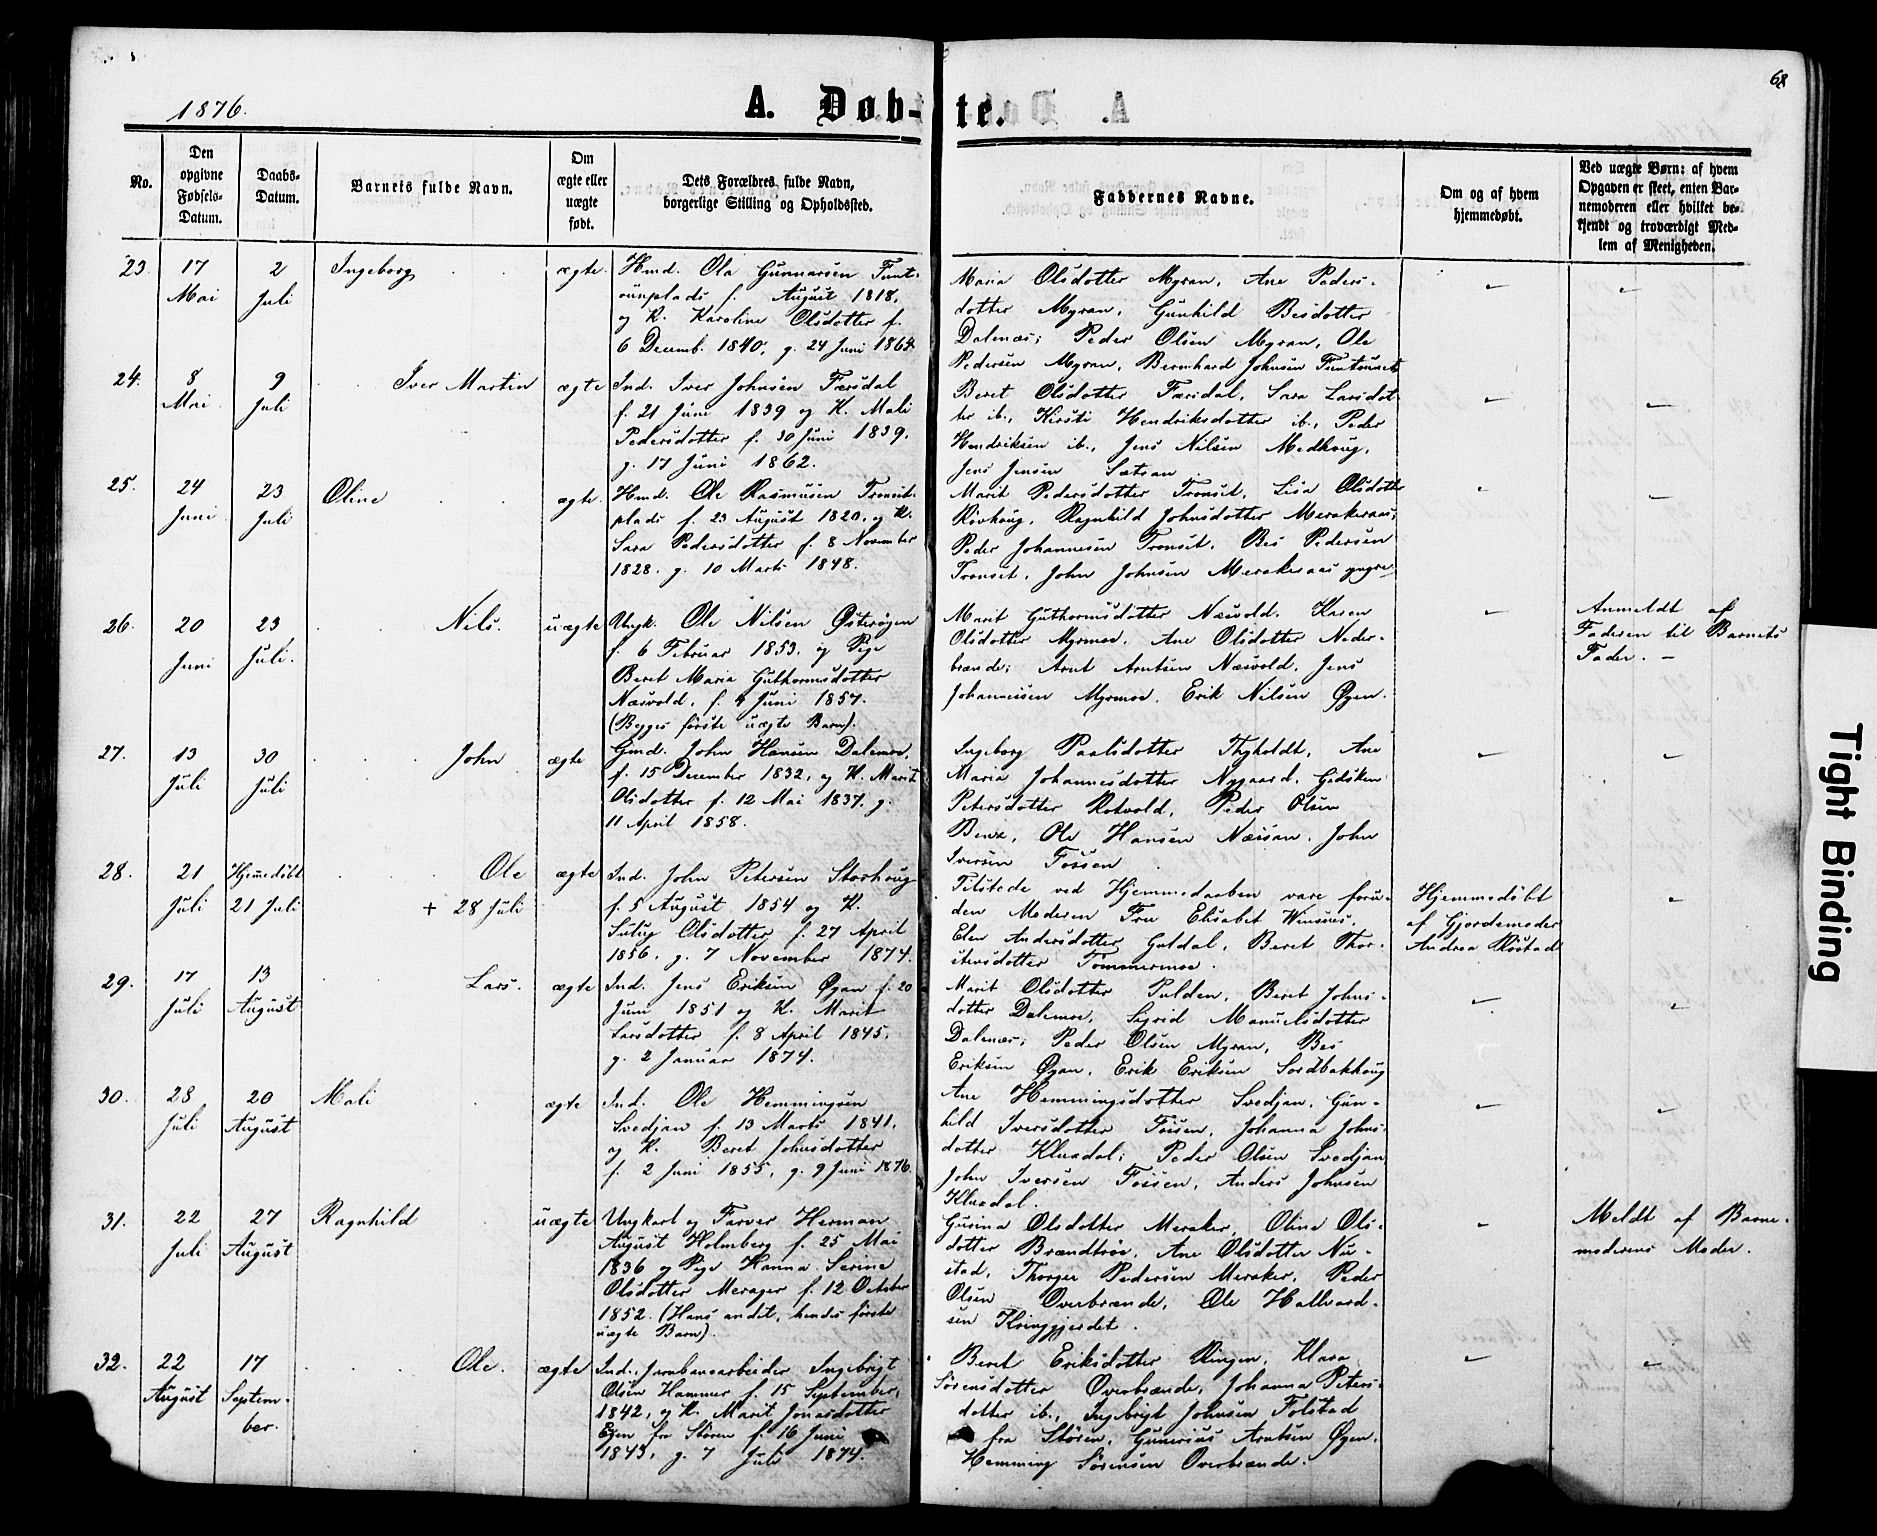 68
1876.
A. Døb-
te.
No.
Den
opgivne
Fødsels-
Datum.
Daabs-
Datum.
Barnets fulde Navn.
Om
ægte eller
uægte
født.
Dets Forældres fulde Navn,
borgerlige Stilling og Opholdssted.
Faddernes Navne.
Om og af hvem
hjemmedøbt.
Ved uægte Børn: af hvem
Opgaven er skeet, enten Bar-
nemoderen eller hvilket be-
kjendt og troværdigt Med-
lem af Menigheden.
23.
17
Mai
2
Juli
Ingeborg
ægte
Hmd. Ola Gunnarsen Funt-
ounplads f. August 1818,
og K. Karoline Olsdotter f.
6 Decemb. 1840, g. 24 Juni 1864
Maria Olsdotter Myran, Ane Peders-
dotter Myran, Gunhild Besdotter
Dalenæs; Peder Olsen Myran, Ole
Pedersen Myran, Bernhard Johnsen Funtaunet
24.
8
Mai
9
Juli
Iver Martin
ægte
Ind. Iver Johnsen Færsdal
f. 21 Juni 1839 og K. Mali
Pedersdotter f. 30 Juni 1839.
g. 17 Juni 1862.
Beret Olsdotter Færsdal, Sara Larsdot-
ter ib., Kirsti Hendriksdotter ib., Peder
Hendriksen ib., Jens Nilsen Medhoug,
Jens Jensen Sætran
25.
24
Juni
23
Juli
Oline
ægte.
Hmd. Ole Rasmusen Tronset-
plads f. 23 August 1820, og K.
Sara Pedersdotter f. 8 November
1828. g. 10 Marts 1848.
Marit Pedersdotter Tronset, Lisa Olsdotter
Røvhoug, Ragnhild Johnsdotter Merakeraas;
Peder Johannesen Tronset, Bes Pedersen
Tronset, John Johnsen Merakeraas yngre
26.
20
Juni
23
Juli.
Nils.
uægte
Ungk. Ole Nilsen Østerøgen
f. 6 Februar 1853, og Pige
Beret Maria Guthormsdotter
Næsvold, f. 4 Juni 1857.
(Begges første uægte Barn).
Marit Guthormsdotter Næsvold. Karen
Olsdotter Myrmoe. Ane Olsdotter Neder-
brænde; Arnt Arntsen Næsvold, Jens
Johannesen Myrmoe. Erik Nilsen Øyen.
Anmeldt af
Faderen til Barnets
Fader. –
27.
13
Juli
30
Juli
John
ægte
Gmd. John Hansen Dalemoe,
f. 15 December 1832, og K. Marit
Olsdotter f. 12 Mai 1837. g.
11 April 1858.
Ingeborg Paalsdotter Thyholdt, Ane
Maria Johannesdotter Nygaard, Gidsken
Petersdotter Rotvold, Peder Olsen
Ole Hansen Næssan, John
Iversen Fossen.
28.
21
Juli
Hjemedøbt
21 Juli
Ole
+ 28 Juli
ægte
Ind. John Petersen Storhoug
f. 5 August 1854 og K.
Olsdotter f. 27 April
1856, g. 7 November 1874.
Tilstede ved Hjemmedaaben vare foru-
den Moderen Fru Elisabet Winsnes.
Elen Andersdotter Guldal, Beret Thor-
stensdotter Tømmermoe.
Hjemmedøbt
af Gjordemoder
Andrea Røstad
29.
17
Juli
13
August
Lars.
ægte
Ind. Jens Eriksen Øyan f. 20
Juni 1851 og K. Marit
Larsdotter f. 8 April 1845,
g. 2 Januar 1874.
Marit Olsdotter Pulden, Beret Johns-
dotter Dalemoe, Sigrid Manuelsdotter
Dalenæs; Peder Olsen Myran, Bes
Eriksen Øyan, Erik Eriksen Sordbakhoug
30.
28
Juli
20
August
Mali
ægte
Ind. Ole Hemmingsen
Svedjan f. 13 Marts 1841,
og K. Beret Johnsdotter
f. 2 Juni 1855, g. 9 Juni 1876.
Ane Hemmingsdotter Svedjan, Gun-
hild Iversdotter Fossen, Johanna Johns-
dotter Kluxdal; Peder Olsen Svedjan
John Iversen Fossen, Anders Johnsen
Kluxdal.
31.
22
Juli
27
August
Ragnhild
uægte
Ungkarl og Farver Herman
August Holmberg f. 25 Mai
1836 og Pige Hanna Serine
Olsdotter Merager f. 12 October
1852. (Hans andet, hendes første
uægte Barn).
Gusina Olsdotter Meraker, Olina Ols-
dotter Brændtrøe, Ane Olsdotter Nu-
stad, Thorger Pedersen Meraker, Peder
Olsen Overbrænde, Ole Hallvard-
sen Kringgjerdet.
Meldt af Barne-
moderens Moder.
32.
22
August
17
Septem-
ber.
Ole.
ægte
Ind. Jernbanearbeider Ingebrigt
Olsen Hammer f. 15 September,
1842, og K. Marit Jonasdotter
Egen fra Støren f. 16 Juni
1843, g. 7 Juli 1874.
Beret Eriksdotter Ringen, Klara
Sørensdotter Overbrænde, Johanna Peters-
dotter ib., Ingebrigt Johnsen Folstad
fra Støren, Gunerius Arntsen Øyen,
Hemming Sørensen Overbrænde.
Tight Binding